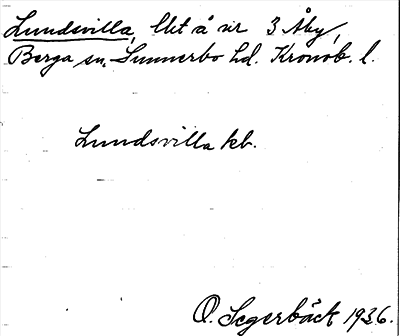 Lundsvilla, lht å nr 3 Åby,
Berga sn, Sunnerbo hd. Kronob. l.
Lundsvilla kb.
O. Segerbäck 1936.